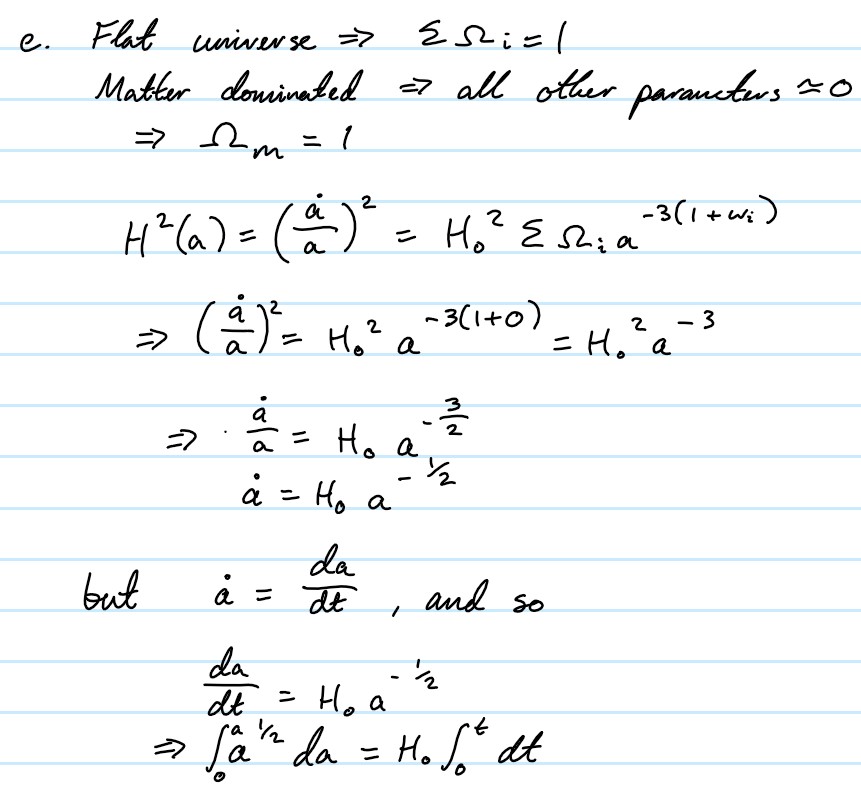 e. Flat universe ⇒ ΣΩᵢ = 1
Matter dominated ⇒ all other parameters ≃ 0
⇒ Ωₘ = 1
H²(a) = (ȧ/a)² = H₀² Σ Ωᵢ a^{-3(1+wᵢ)}
⇒ (ȧ/a)² = H₀² a^{-3(1+0)} = H₀² a^{-3}
⇒ ȧ/a = H₀ a^{-3/2}
ȧ = H₀ a^{-1/2}
but ȧ = da/dt , and so
da/dt = H₀ a^{-1/2}
⇒ ∫₀^a a^{1/2} da = H₀ ∫₀^t dt